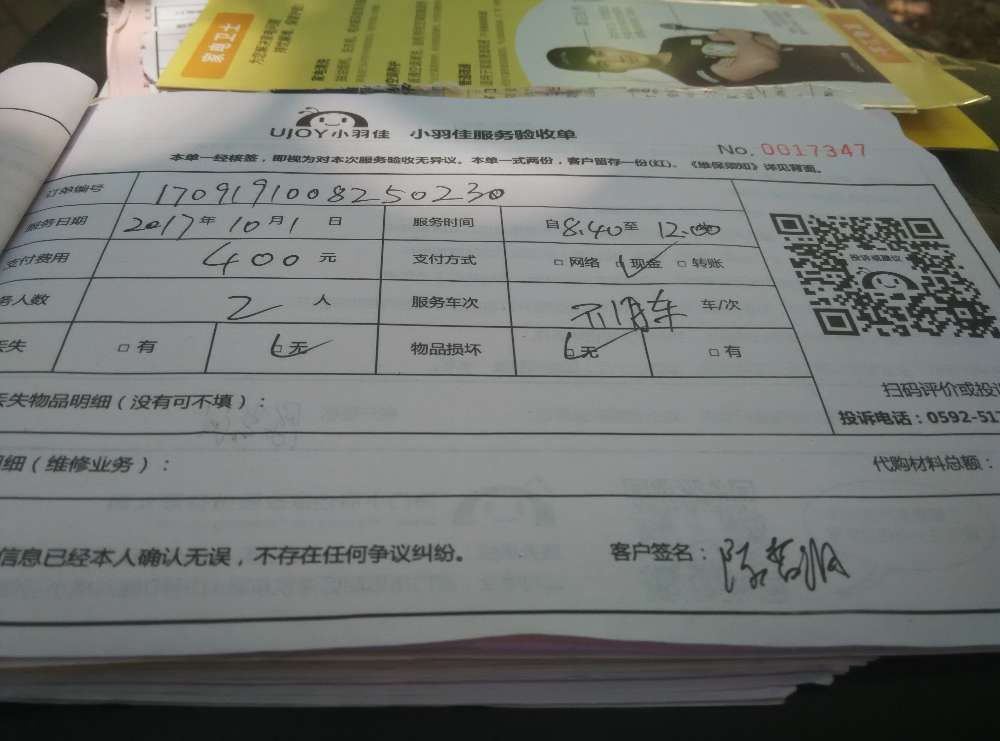 家电卫士
UJOY小羽佳 小羽佳服务验收单
No. 0017347
本单一经核签，即视为对本次服务验收无异议。本单一式两份，客户留存一份(红)。《维保须知》详见背面。
订单编号 1709191008250230
服务日期 2017年 10月 1日 服务时间 自8.40至 12.00
支付费用 400元 支付方式 □网络 □现金 □转账
务人数 2人 服务车次 不用车 车/次
丢失 □有 □无 物品损坏 □无 □有
投诉或建议
扫码评价或投
丢失物品明细（没有可不填）：
投诉电话：0592-51
明细（维修业务）： 代购材料总额：
信息已经本人确认无误，不存在任何争议纠纷。 客户签名：